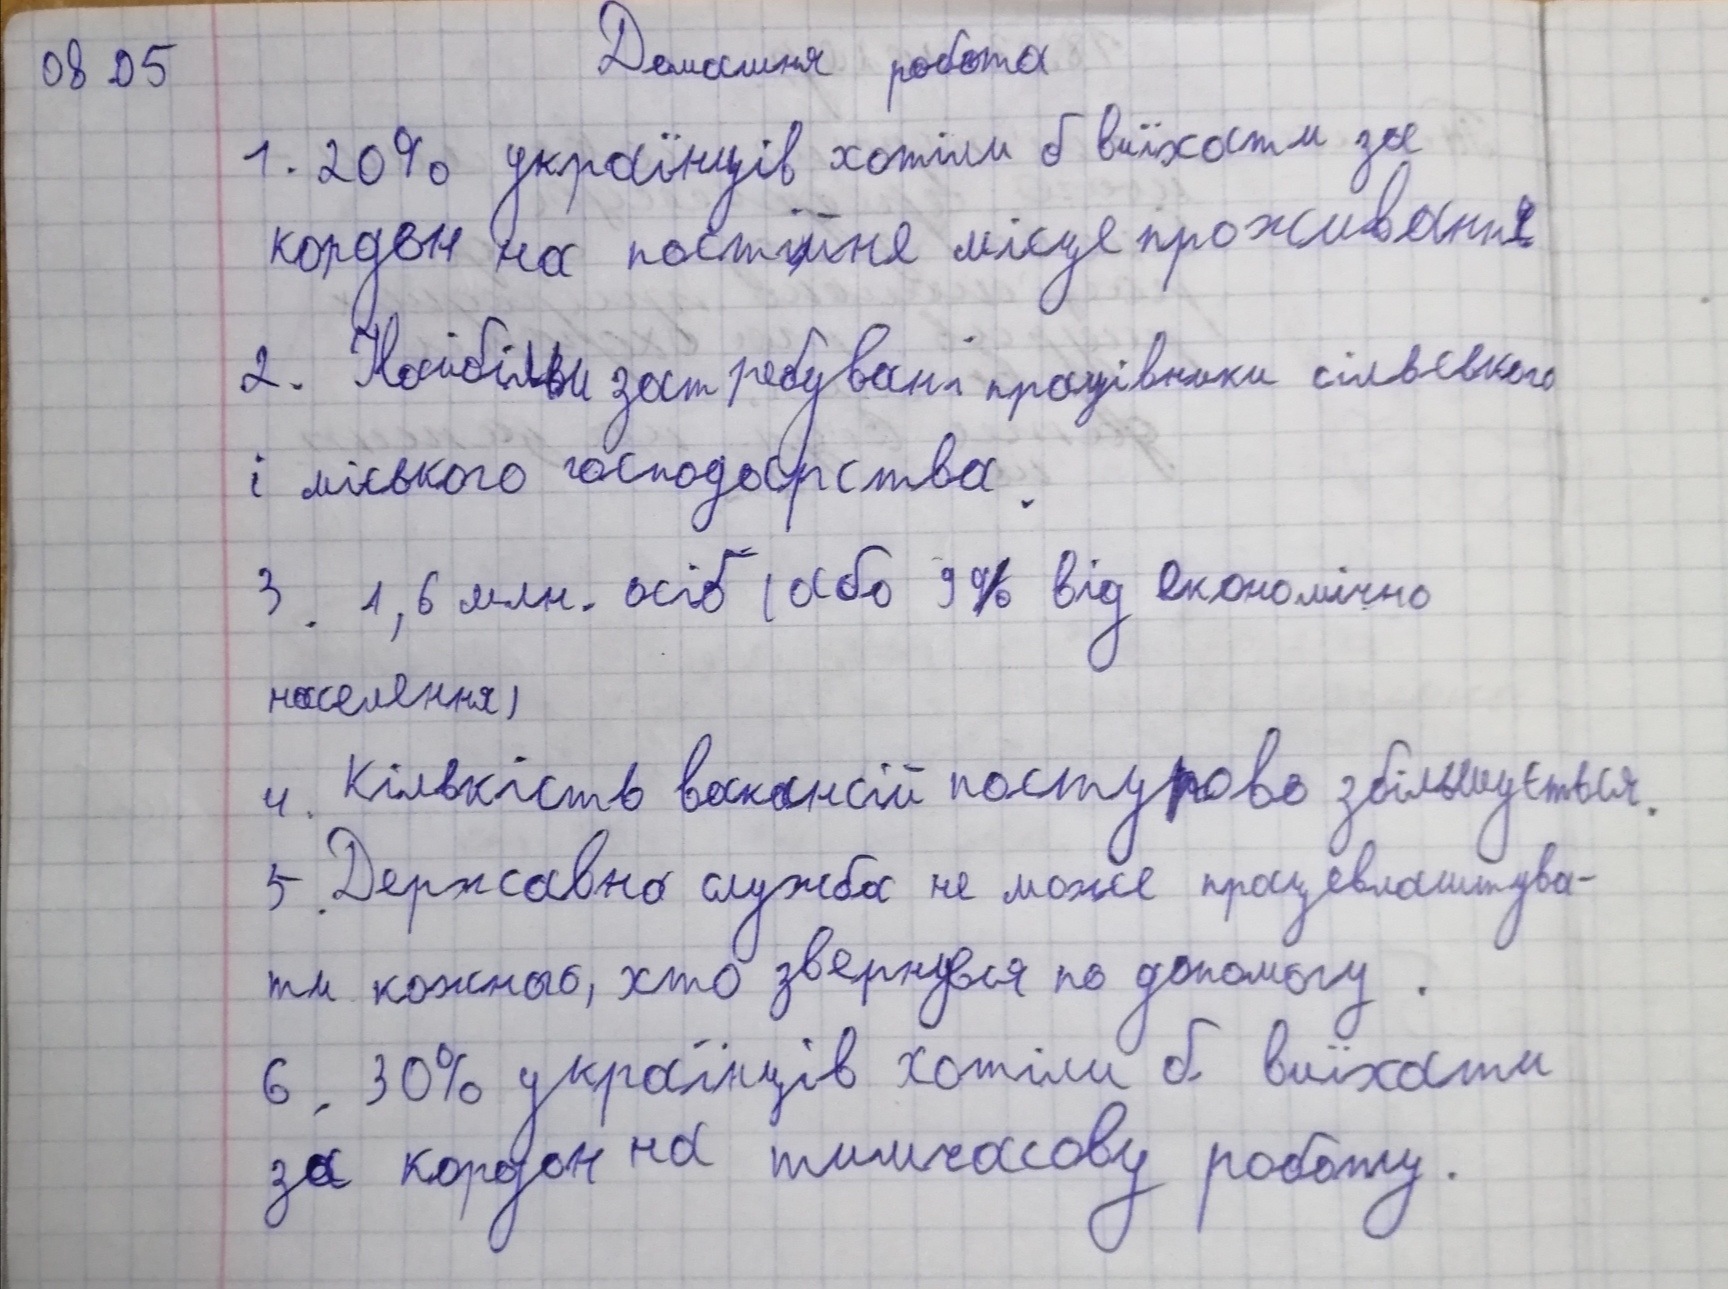 08 05 Домашня робота
1. 20% українців хотіли б виїхати за
кордон на постійне місце проживання
2. Найбільш затребувані працівники сільського
і міського господарства.
3. 1,6 млн. осіб (або 9% від економічно
населення)
4. Кількість вакансій поступово збільшується.
5. Державна служба не може працевлаштува-
ти кожного, хто звернувся по допомогу.
6. 30% українців хотіли б виїхати
за кордон на тимчасову роботу.